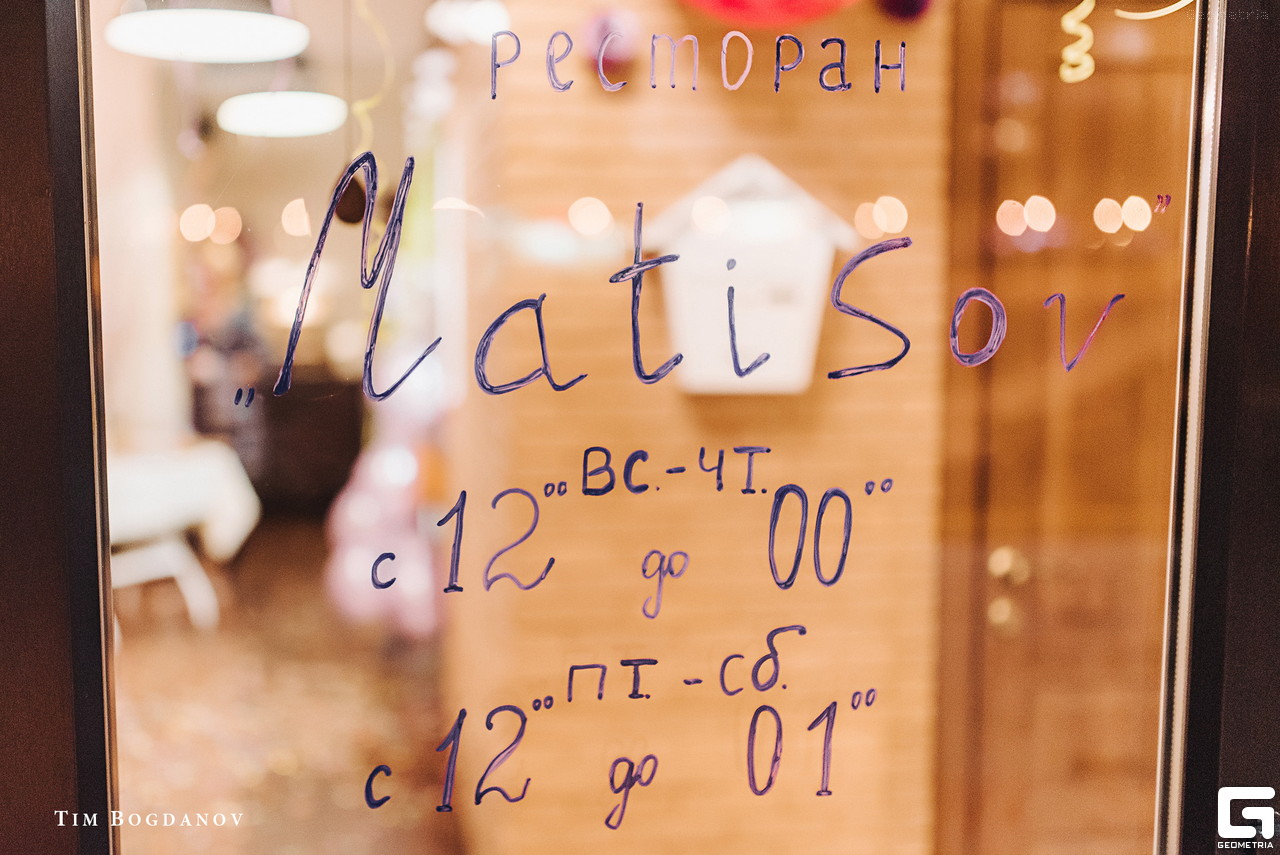 ресторан
„Matisov"
вс.-чт.
с 12⁰⁰ до 00⁰⁰
пт.-сб.
с 12⁰⁰ до 01⁰⁰
TIM BOGDANOV
GEOMETRIA
geometria